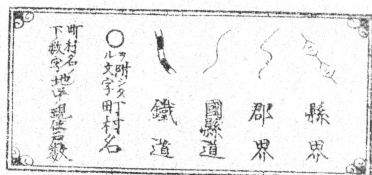 縣界
郡界
國縣道
鐵道
○ヲ附シタル文字ハ町村名
町村名ノ下数字ハ地